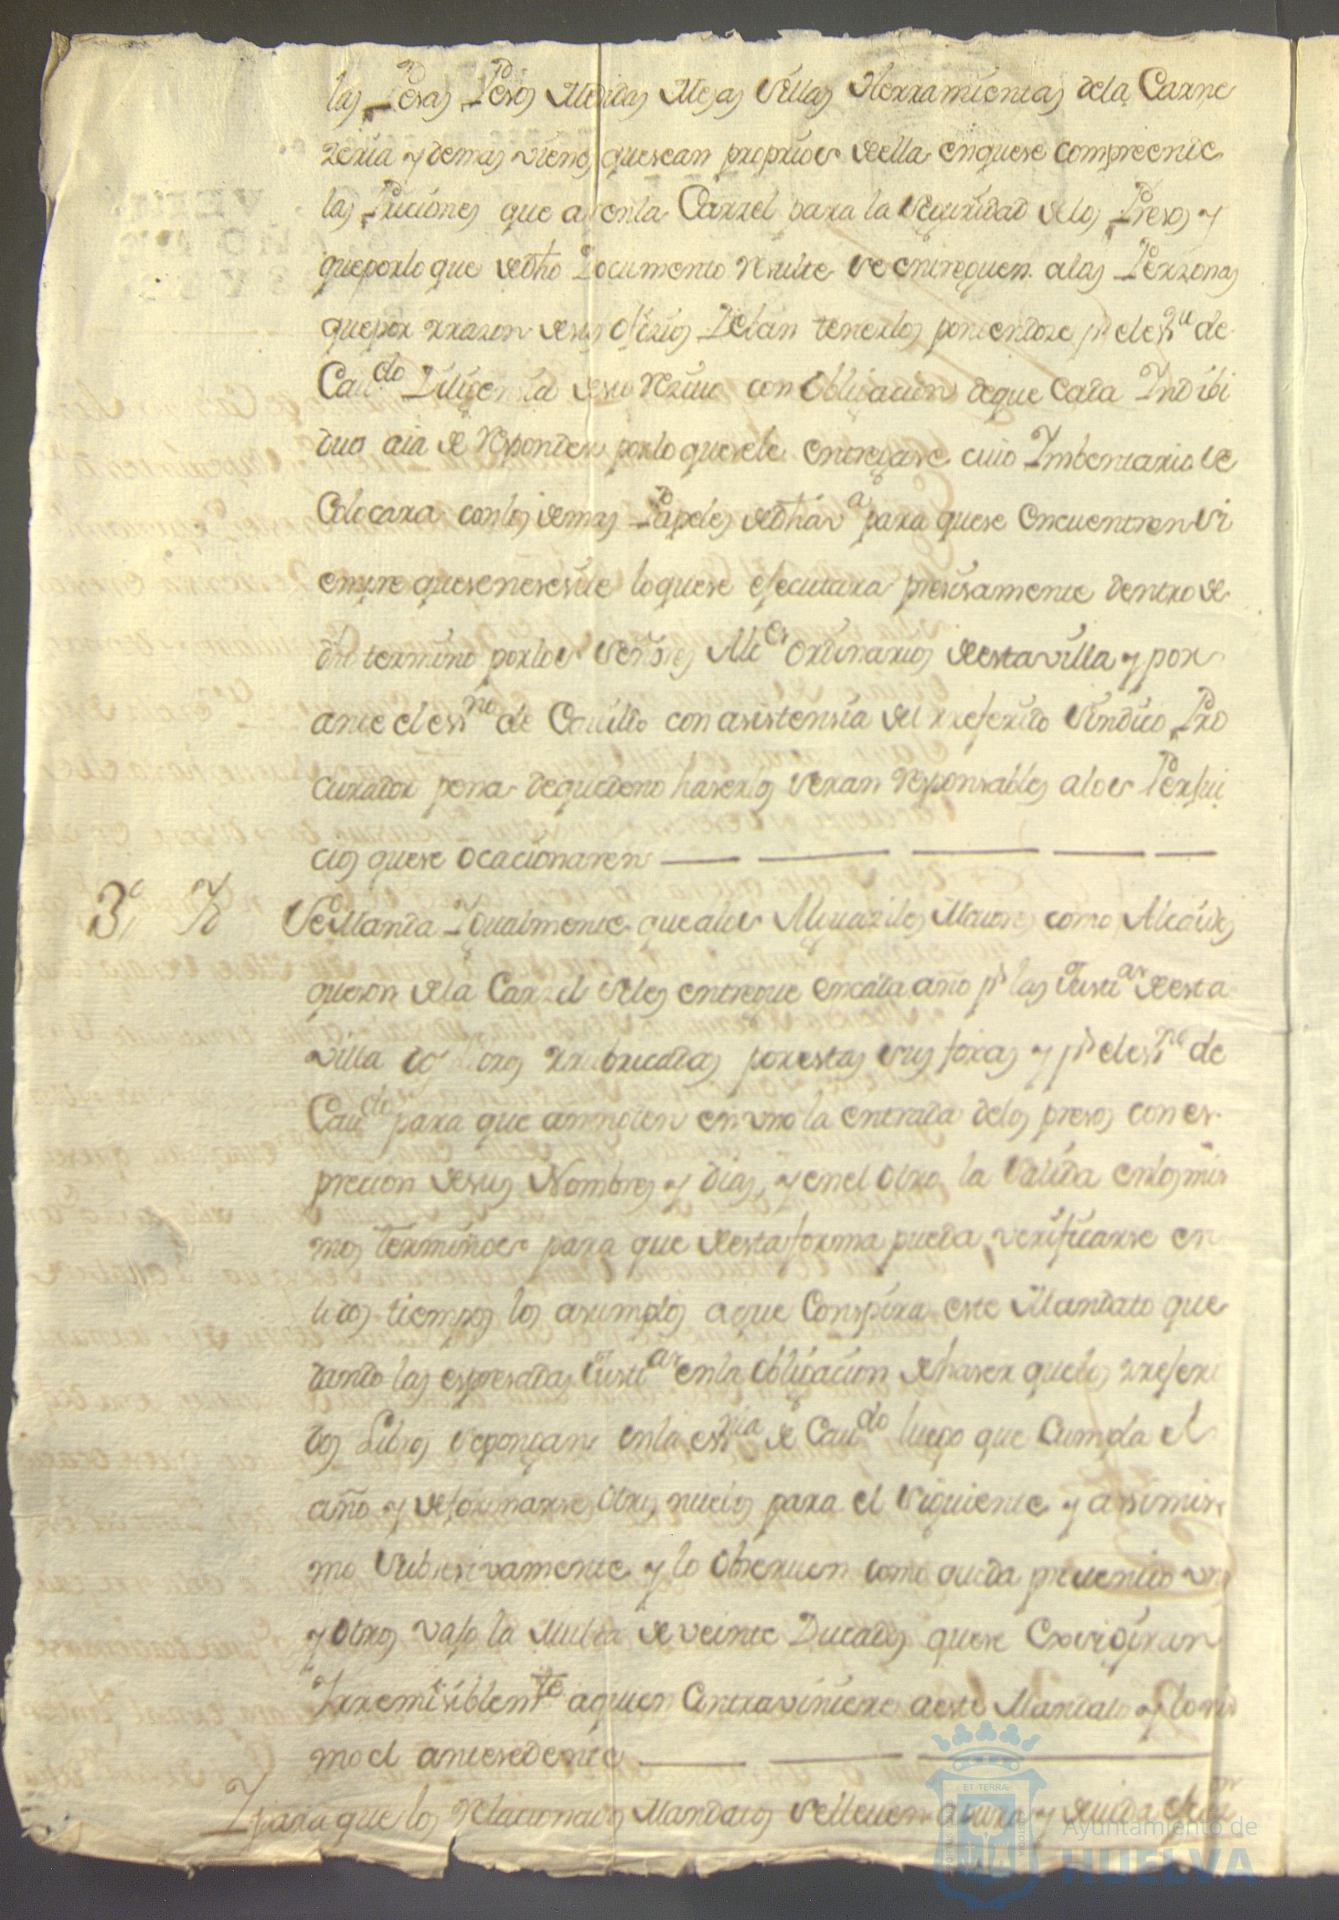 las Pesas Pesos Medidas Mesas Sillas Herramientas dela Carne
zeria y demas vienes que sean proprios de ella en que se compreende
las Priciones que ai en la Carzel para la seguridad de los Presos y
que por lo que de dho Documento resulte se entreguen a las Perzonas
que por rrazon de sus ofizios Deban tenerlos poniendose pr el essno de
Caudo Diligencia de su rezivo con obligacion de que Cada Indibi
duo aia de responder por lo que se le entregase cuio Imbentario se
Colocara con los demas Papeles de dha va para que se encuentren si
empre que se nesesite lo que se ejecutara presisamente dentro de
dho termino por los Señores Alces ordinarios de esta villa y por
ante el essno de Cavildo con asistensia del rreferido Sindico Pro
curador pena de que de no haserlo seran responsables a los Perjui
cios que se ocacionaren
3º Yt Se Manda Igualmente que a los Alguaziles Maiores como Alcaides
que son de la Carzel se les entregue en cada año pr las Justias de esta
villa dos Libros rrubricadas por estas sus foxas y pr el essno de
Caudo para que annoten en uno la entrada de los presos con es
precion de sus Nombres y Dias, y en el otro la Salida en los mis
mos terminos para que de esta forma pueda verificarse en
todos tiempos los asumptos a que Conspira este Mandato que
dando las espresadas Justias en la obligacion de haser que los rreferi
dos Libros se pongan en la essnia de Caudo luego que Cumpla el
año y de formarse otros nuevos para el siguiente y assimis
mo subsesivamente y lo obseruen como queda preuenido unos
y otros vajo la Multa de veinte Ducados que se Exsigiran
Irremisiblemte a quien Contraviniere a este Mandato y lo mis
mo el antesedente
I para que los relacionados Mandatos se lleuen a pura y deuida ejon
ET TERRA
Ayuntamiento de
HUELVA